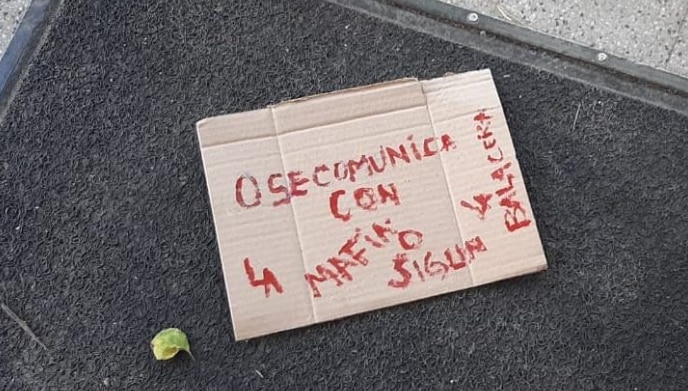 O SE COMUNICA
CON
LA MAFIA
O SIGUN LA
BALACERA